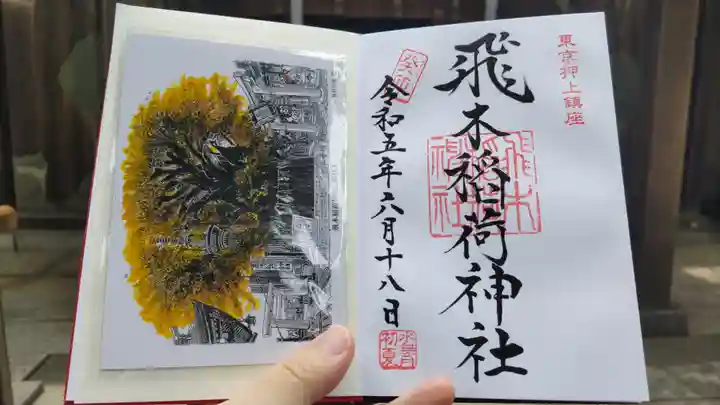 東京押上鎮座
飛木稲荷神社
飛木
稲荷
神社
癸卯
令和五年六月十八日
初夏